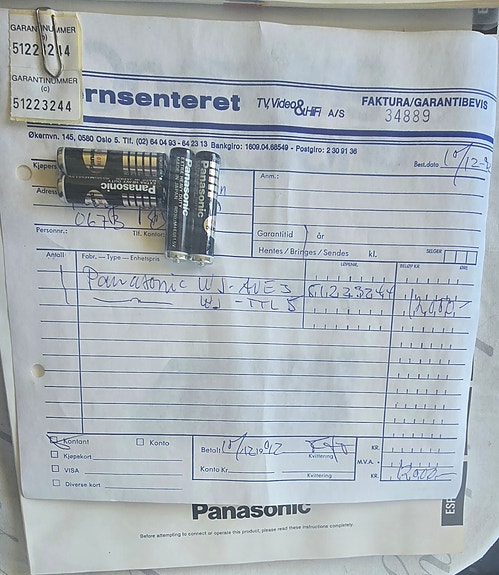 GARANTINUMMER
51223244
GARANTINUMMER
(c)
51223244
rnsenteret TV, Video & HiFi A/S
FAKTURA/GARANTIBEVIS
34889
Økernvn. 145, 0580 Oslo 5. Tlf. (02) 64 04 93 - 64 23 13 Bankgiro: 1609.04.68549 - Postgiro: 2 30 91 36
Kjøpers
Anm.:
Best.dato
Adress
Panasonic
Panasonic
Panasonic
Panasonic
067B
Personnr.:
Tlf. Kontor:
Garantitid år
Hentes / Bringes / Sendes kl.
SELGER:
Antall
Fabr. — Type — Enhetspris
LØPENR.
BELØP KR.
ØRE
1 Panasonic WJ-AVE5 51223244 12.000,-
WJ-TTL5
Kontant
Konto
Kjøpekort
VISA
Diverse kort
Betalt
Kvittering
Konto Kr.
Kvittering
KR.
M.V.A. +
KR. 12.000,-
Panasonic
Before attempting to connect or operate this product, please read these instructions completely.
ESP